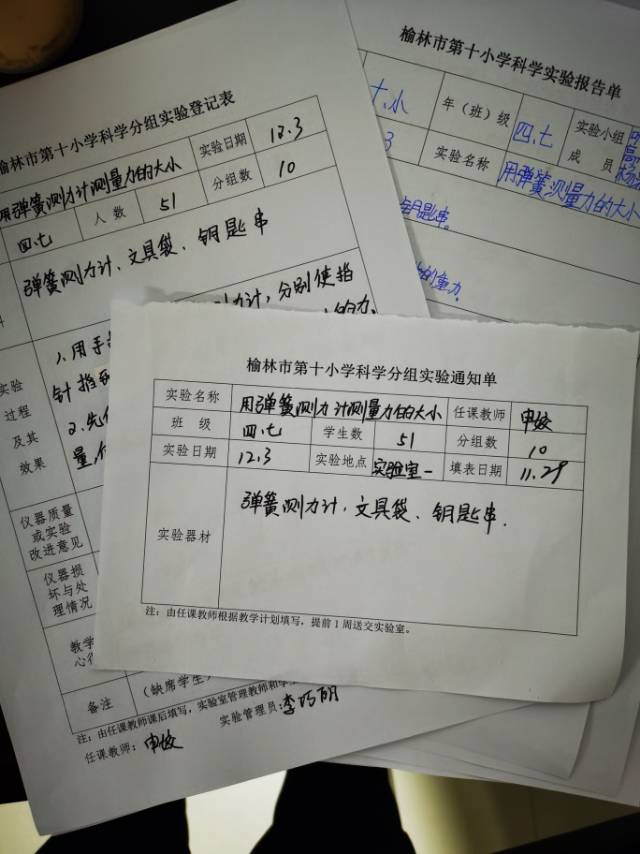 榆林市第十小学科学分组实验登记表
用弹簧测力计测量力的大小 实验日期 12.3
四.七 人数 51 分组数 10
弹簧测力计、文具袋、钥匙串
力计,分别使指
的力.
实验过程及其效果
1.用手
针指
2.先
量
仪器质量或实验改进意见
仪器损坏与处理情况
教学心
备注 (缺席学生
注:由任课教师课后填写,实验室管理教师和学
任课教师: 申姣 实验管理员:李巧丽
榆林市第十小学科学实验报告单
十小 年(班)级 四.七 实验小组成员
3 实验名称 用弹簧测量力的大小
钥匙串.
的重力.
榆林市第十小学科学分组实验通知单
实验名称 用弹簧测力计测量力的大小 任课教师 申姣
班级 四.七 学生数 51 分组数 10
实验日期 12.3 实验地点 实验室一 填表日期 11.29
实验器材 弹簧测力计.文具袋、钥匙串.
注:由任课教师根据教学计划填写,提前1周送交实验室。